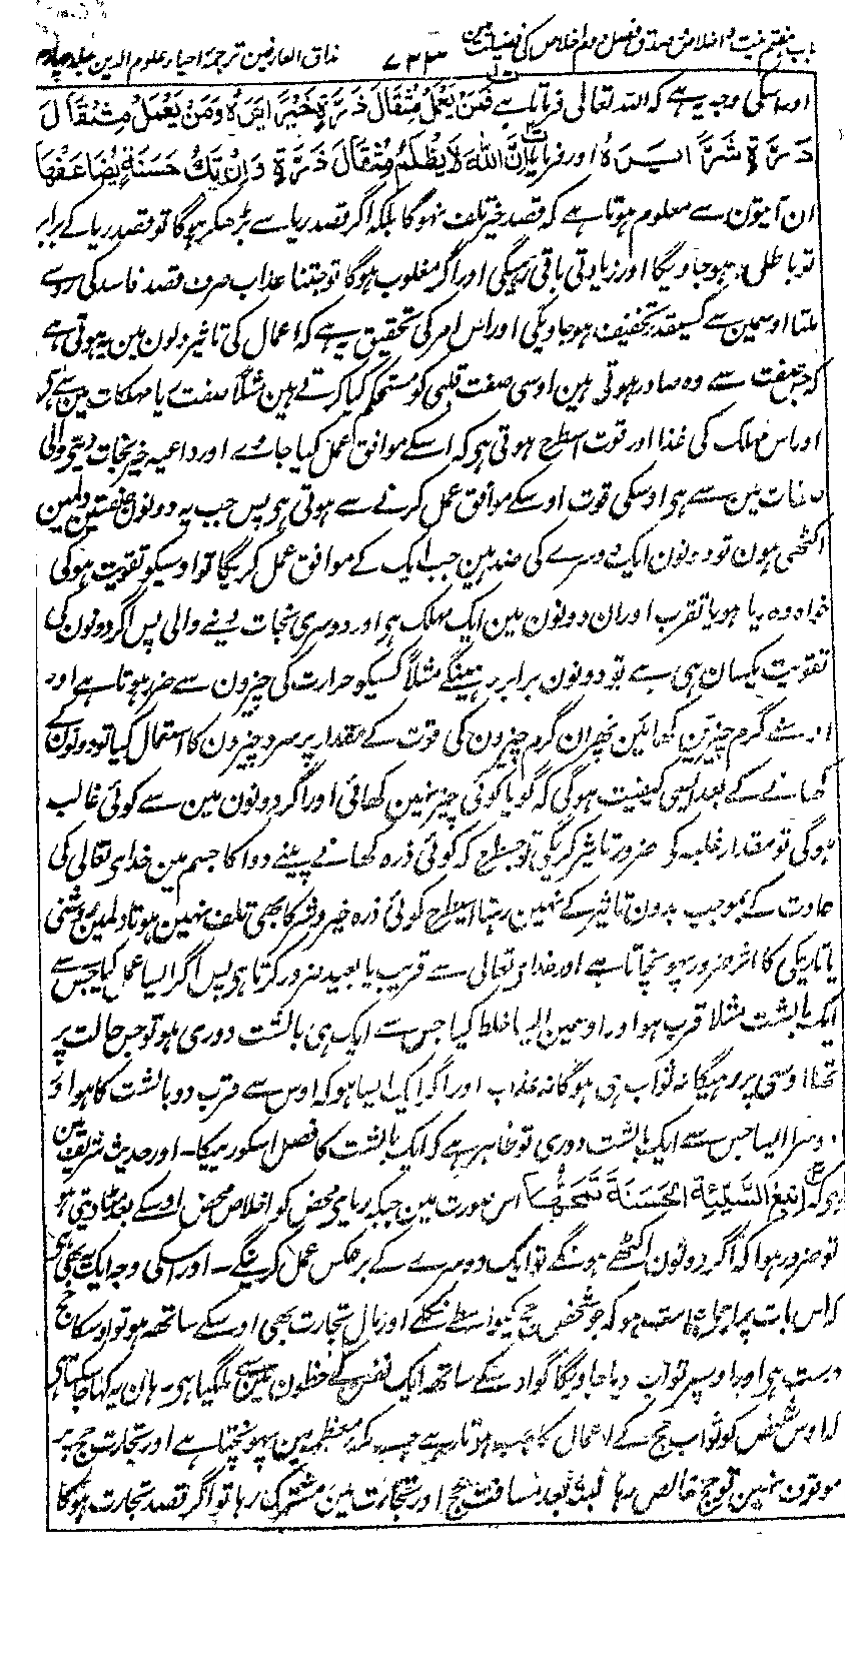 باب ہفتم نیت و اخلاص و صدق فصل دوم اخلاص کی فضیلت مین ۷۳۳ مذاق العارفین ترجمۂ احیاء علوم الدین جلد چہارم
اور اسکی وجہ یہ ہے کہ اللہ تعالی فرماتا ہے فَمَنْ يَعْمَلْ مِثْقَالَ ذَرَّةٍ خَيْرًا يَرَهُ وَمَنْ يَعْمَلْ مِثْقَالَ
ذَرَّةٍ شَرًّا يَرَهُ اور فرمایا إِنَّ اللَّهَ لَا يَظْلِمُ مِثْقَالَ ذَرَّةٍ وَإِنْ تَكُ حَسَنَةً يُضَاعِفْهَا
ان آیتون سے معلوم ہوتا ہے کہ قصد خیر تلف نہوگا بلکہ اگر قصد ریا سے بڑھکر ہوگا تو قصد ریا کے برابر
تو باطل ہوجاویگا اور زیادتی باقی رہیگی اور اگر مغلوب ہوگا تو جتنا عذاب صرف قصد فاسد کی روسے
ملتا اوسمین سے کسیقدر تخفیف ہوجاویگی اور اس امر کی تحقیق یہ ہے کہ اعمال کی تاثیر دلون مین یہ ہوتی ہے
کہ جس صفت سے وہ صادر ہوتی ہین اوسی صفت قلبی کو مستحکم کیا کرتے ہین مثلاً صفت ریا مہلکات مین سے ہے
اور اس مہلک کی غذا اور قوت اسطرح ہوتی ہی کہ اسکے موافق عمل کیا جائے اور داعیہ خیر نجات دینے والی
صفات مین سے ہی اوسکی قوت اوسکے موافق عمل کرنے سے ہوتی ہی پس جب یہ دونون صفتین دلمین
اکٹھی ہون تو دونون ایک دوسرے کی ضد ہین جب ایک کے موافق عمل کریگا تو اوسیکو تقویت ہوگی
خواہ وہ ریا ہو یا تقرب اور ان دونون مین ایک مہلک ہی اور دوسری نجات دینے والی پس اگر دونون کی
تقویت یکسان ہی ہے تو دونون برابر رہینگے مثلاً کسیکو حرارت کی چیزون سے ضرر ہوتا ہے اور
اوسنے گرم چیزین کھائین پھر ان گرم چیزون کی قوت کے مقدار پر سرد چیزون کا استعمال کیا تو دونون کے
کھانے کے بعد ایسی کیفیت ہوگی کہ گویا کوئی چیز نہین کھائی اور اگر دونون مین سے کوئی غالب
ہوگی تو مقدار غلبہ کو ضرور تاثیر کریگی تو جسطرح کہ کوئی ذرہ کھانے پینے دوا کا جسم مین خدای تعالی کی
عادت کے بموجب بدون تاثیر کے نہین رہتا اسیطرح کوئی ذرہ خیر و شر کا بھی تلف نہین ہوتا دلمین روشنی
یا تاریکی کا اثر ضرور پہونچاتا ہے اور خدای تعالی سے قریب یا بعید ضرور کرتا ہی پس اگر ایسا عمل کیا جس سے
ایک بالشت مثلا قرب ہو اور اوسمین ایسا خلط کیا جس سے ایک ہی بالشت دوری ہو تو جس حالت پر
تھا اوسی پر رہیگا نہ ثواب ہی ہوگا نہ عذاب اور اگر ایک ایسا ہو کہ اوس سے قرب دو بالشت کا ہو اور
دوسرا ایسا جس سے ایک بالشت دوری تو ظاہر ہے کہ ایک بالشت کا فضل اسکو رہیگا۔ اور حدیث شریف مین
ہی کہ اتْبَعِ السَّيِّئَةَ الْحَسَنَةَ تَمْحُهَا اس صورت مین جبکہ ریای محض کو اخلاص محض اوسکے بعد مٹا دیتی ہو
تو ضرور ہوا کہ اگر دونون اکٹھے ہونگے تو ایک دوسرے کے برعکس عمل کرینگے۔ اور اسکی وجہ ایک یہ بھی ہی
کہ اس بات پر اجماع امت ہو کہ جو شخص حج کیواسطے نکلے اور مال تجارت بھی اوسکے ساتھ ہو تو اوسکا حج
درست ہی اور اوسپر ثواب دیا جاویگا گو اوسکے ساتھ ایک نفس کے حظون مین سے ملگیا ہی۔ ہان یہ کہا جاسکتا ہی
کہ اوس شخص کو ثواب حج کے اعمال کا جب ہوتا ہے جب مکہ معظمہ مین پہونچتا ہے اور تجارت حج پر
موقوف نہین تو حج خالص رہا البتہ بعد مسافت حج اور تجارت مین مشترک رہا تو اگر قصد تجارت ہوگا